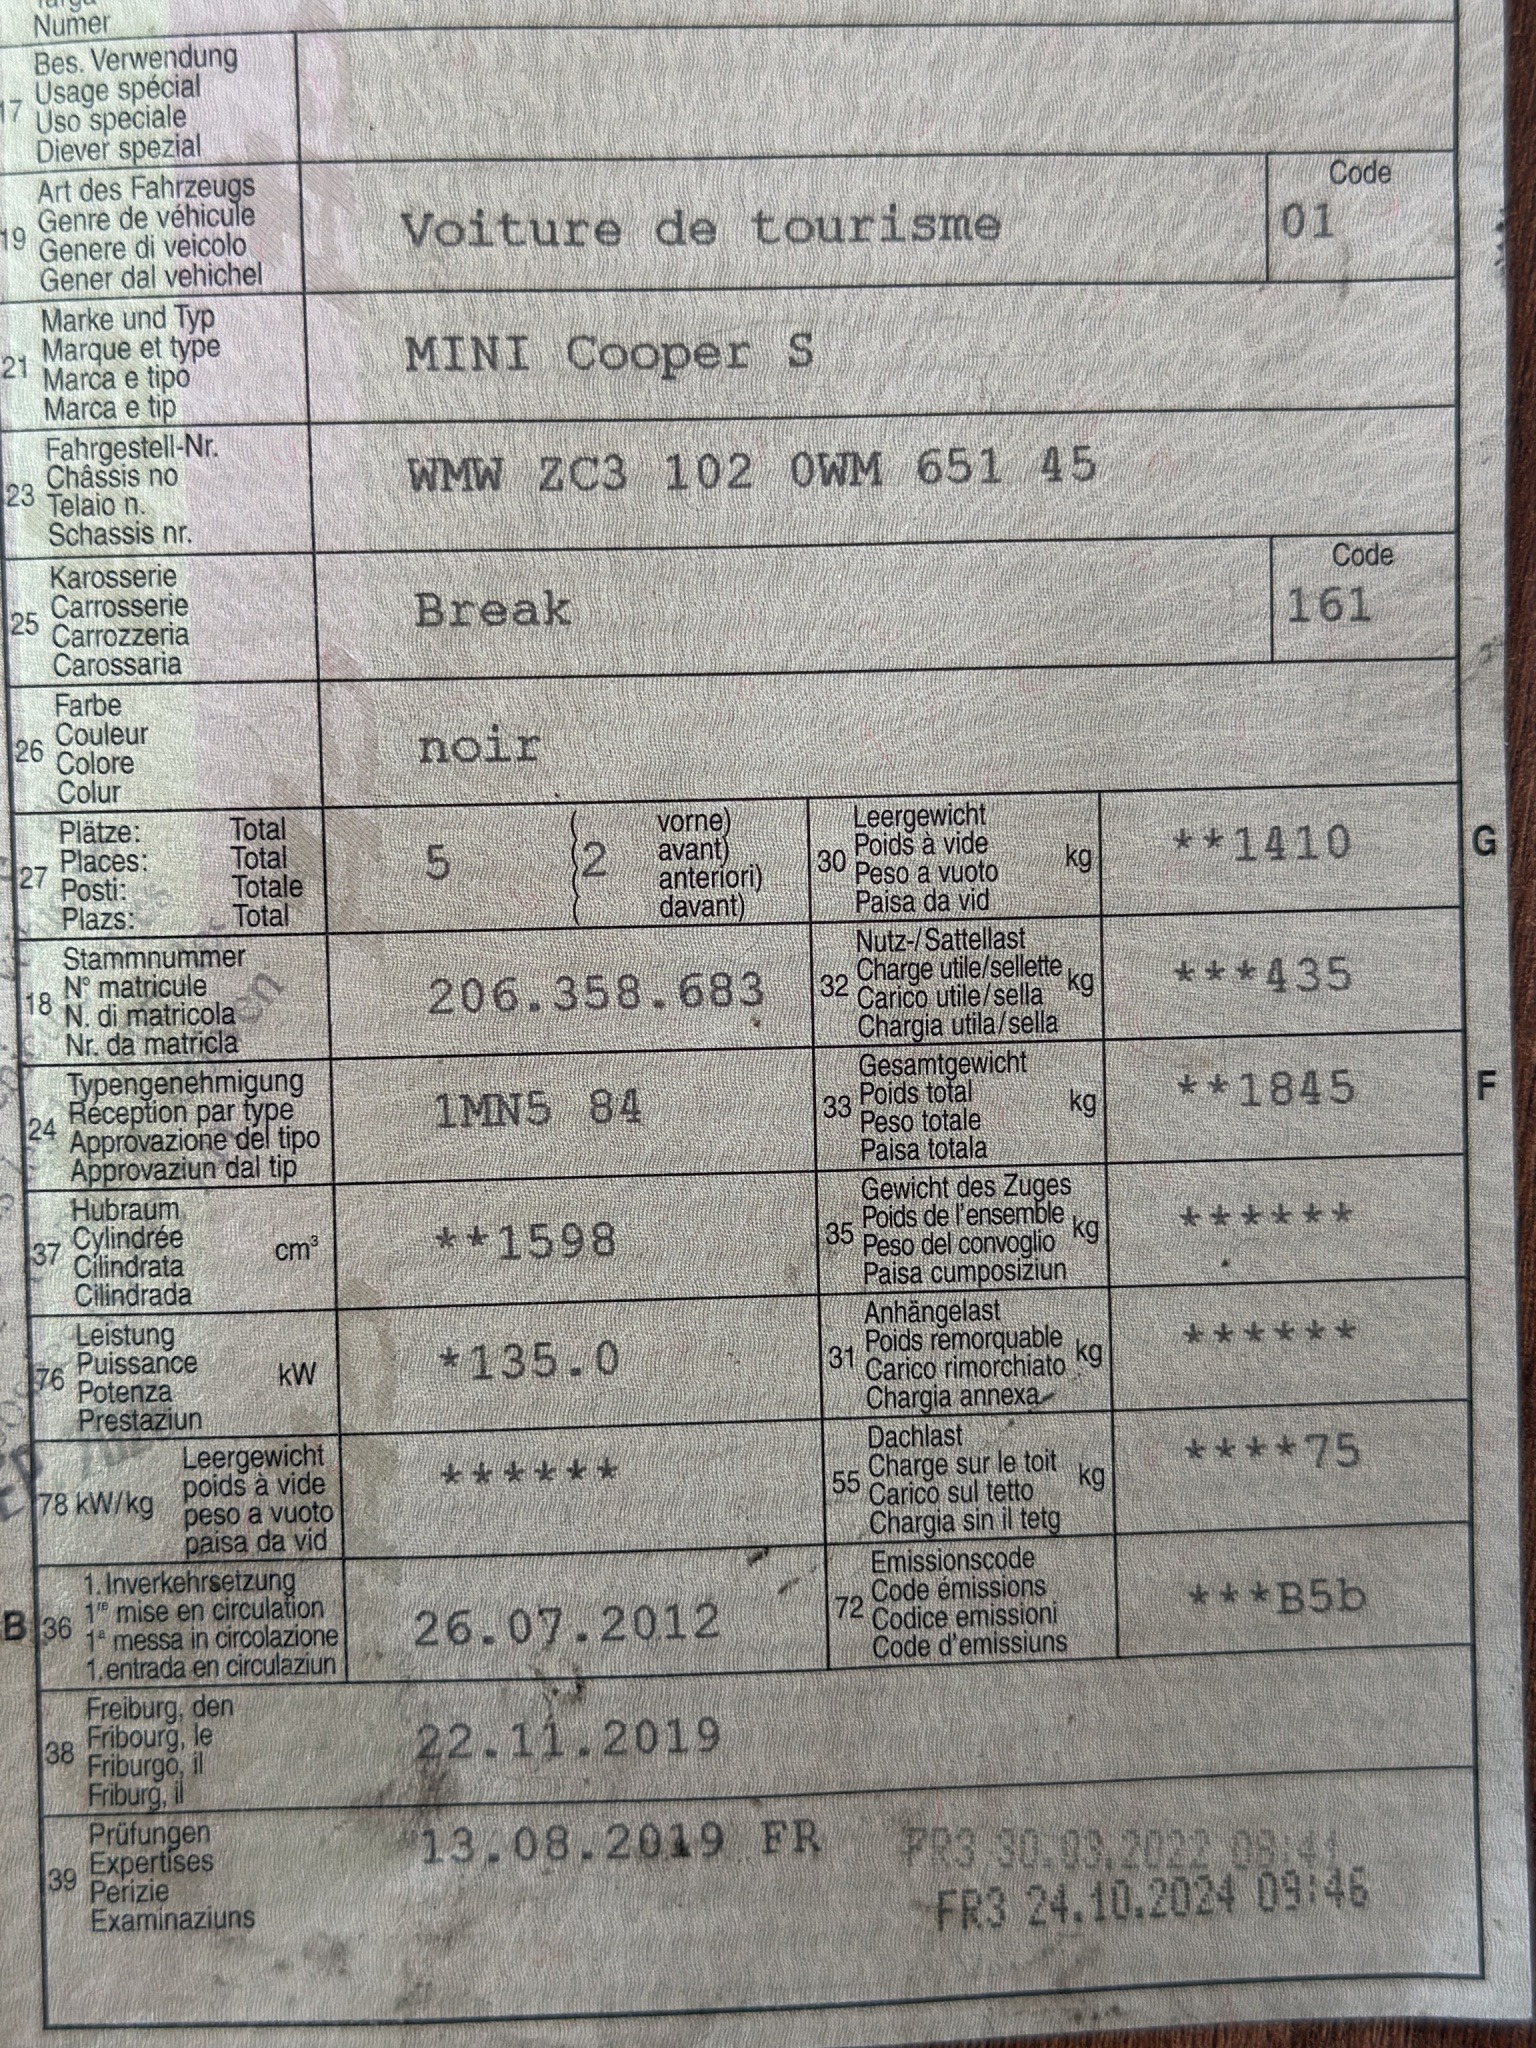 Numer
17 Bes. Verwendung
Usage spécial
Uso speciale
Diever spezial
19 Art des Fahrzeugs
Genre de véhicule
Genere di veicolo
Gener dal vehichel
Voiture de tourisme
Code
01
21 Marke und Typ
Marque et type
Marca e tipo
Marca e tip
MINI Cooper S
23 Fahrgestell-Nr.
Châssis no
Telaio n.
Schassis nr.
WMW ZC3 102 0WM 651 45
25 Karosserie
Carrosserie
Carrozzeria
Carossaria
Break
Code
161
26 Farbe
Couleur
Colore
Colur
noir
27 Plätze: Total
Places: Total
Posti: Totale
Plazs: Total
5 (2 vorne)
avant)
anteriori)
davant)
30 Leergewicht
Poids à vide
Peso a vuoto
Paisa da vid
kg
**1410
G
18 Stammnummer
N° matricule
N. di matricola
Nr. da matricla
206.358.683
32 Nutz-/Sattellast
Charge utile/sellette
Carico utile/sella
Chargia utila/sella
kg
***435
24 Typengenehmigung
Réception par type
Approvazione del tipo
Approvaziun dal tip
1MN5 84
33 Gesamtgewicht
Poids total
Peso totale
Paisa totala
kg
**1845
F
37 Hubraum
Cylindrée
Cilindrata
Cilindrada
cm³
**1598
35 Gewicht des Zuges
Poids de l'ensemble
Peso del convoglio
Paisa cumposiziun
kg
******
76 Leistung
Puissance
Potenza
Prestaziun
kW
*135.0
31 Anhängelast
Poids remorquable
Carico rimorchiato
Chargia annexa
kg
******
78 kW/kg
Leergewicht
poids à vide
peso a vuoto
paisa da vid
******
55 Dachlast
Charge sur le toit
Carico sul tetto
Chargia sin il tetg
kg
****75
B 36 1. Inverkehrsetzung
1re mise en circulation
1a messa in circolazione
1. entrada en circulaziun
26.07.2012
72 Emissionscode
Code émissions
Codice emissioni
Code d'emissiuns
***B5b
38 Freiburg, den
Fribourg, le
Friburgo, il
Friburg, il
22.11.2019
39 Prüfungen
Expertises
Perizie
Examinaziuns
13.08.2019 FR
FR3 30.03.2022 09:41
FR3 24.10.2024 09:46